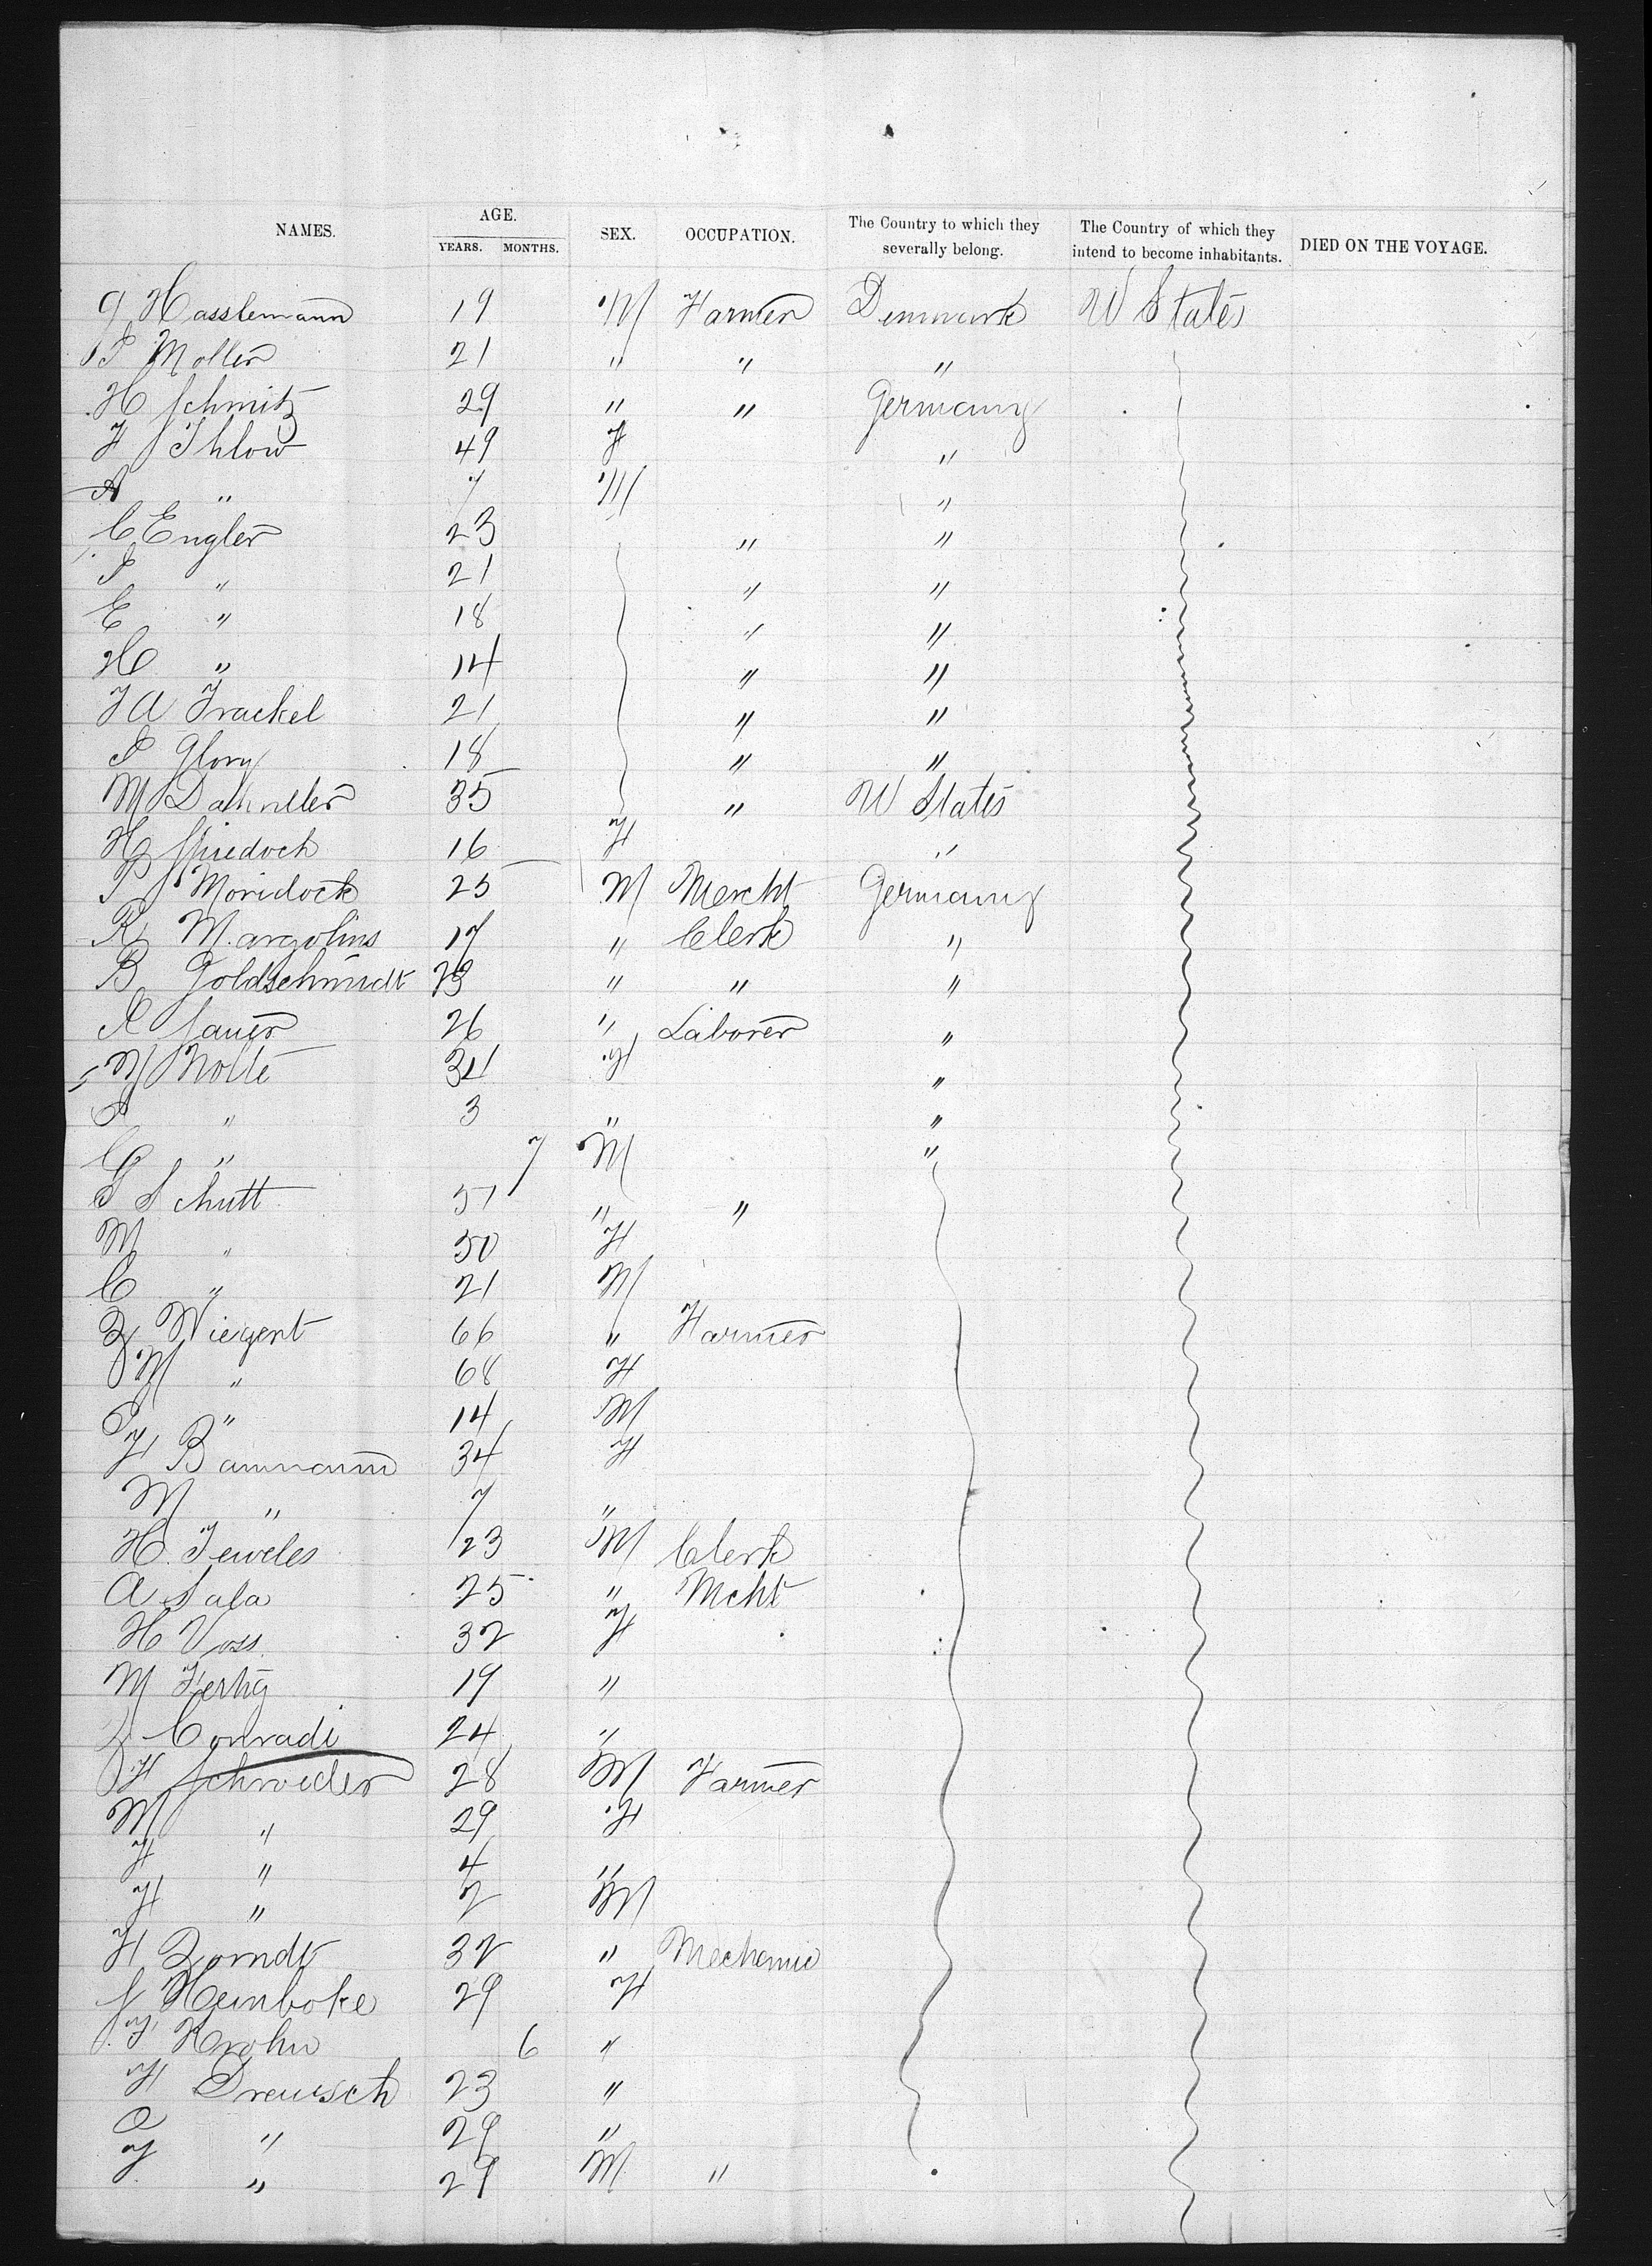 NAMES. AGE. YEARS. MONTHS. SEX. OCCUPATION. The Country to which they severally belong. The Country of which they intend to become inhabitants. DIED ON THE VOYAGE.
G Hasslemann 19 M Farmer Denmark U States
P Moller 21 " " "
H Schmitz 29 " " Germany
F Ihlow 49 F "
A " 7 M "
C Engler 23 " "
S " 21 " "
E " 18 " "
H " 14 " "
J A Frackel 21 " "
S Glory 18 " "
M 35 " U States
H 16 F "
P Moridock 25 M Mercht Germany
R Margolins 17 " Clerk "
B Goldschmidt 23 " " "
A Sauer 26 " Laborer "
M Nolte 34 F "
3 " "
C " 7 M "
G Schutt 51 " "
M " 50 F
C " 21 M
Z Wiegent 66 " Farmer
M " 68 F
" 14 M
F Baumann 34 F
M " 7 "
H Jeweles 23 M Clerk
A Sala 25 " Mcht
H Voss 32 F
M Fertig 19 "
Conradi 24 "
H Schroeder 28 M Farmer
M " 29 F
F " 4 "
H " 2 M
H Zorndt 32 " Mechanic
J Heinboke 29 F
F Krohn 6 "
H Dreusch 23 "
O " 29 "
J " 29 M "